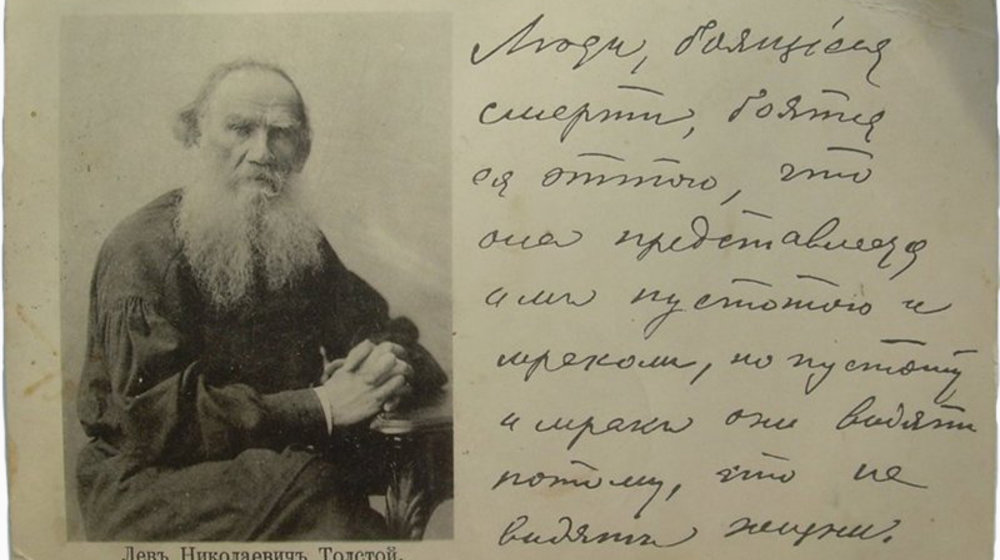 Люди, боящіеся
смерти, боятся
ея оттого, что
она представляется
имъ пустотою и
мракомъ, но пустоту
и мракъ они видятъ
потому, что не
видятъ жизни.
Левъ Николаевичъ Толстой.